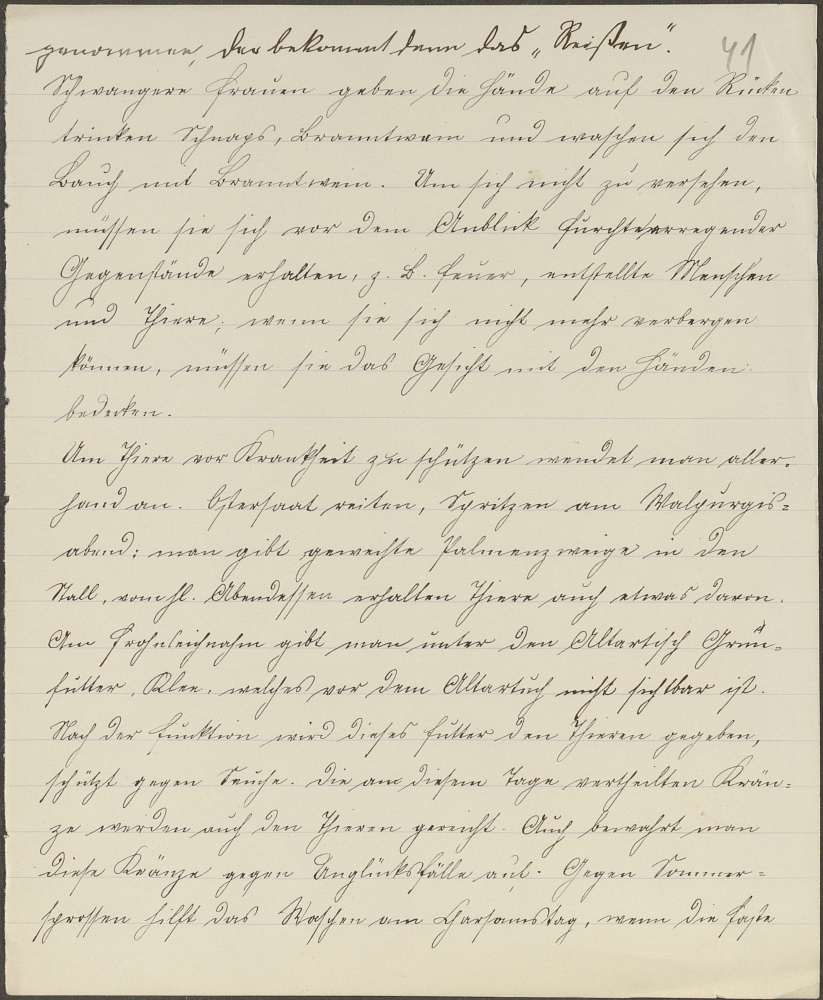 genommen, der bekommt dann das „Reißen“.
41
Schwangere Frauen geben die Hände auf den Rücken
trinken Schnaps, Branntwein und waschen sich den
Bauch mit Branntwein. Um sich nicht zu versehen,
müssen sie sich vor dem Anblick furchterregender
Gegenstände erhalten, z. B. Feuer, entstellte Menschen
und Thiere; wenn sie sich nicht mehr verbergen
können, müssen sie das Gesicht mit den Händen
bedecken.
Um Thiere vor Krankheit zu schützen wendet man aller-
hand an. Ostersaat reiten, Spritzen am Walpurgis=
abend; man gibt geweihte Palmenzweige in den
Stall, vom hl. Abendessen erhalten Thiere auch etwas davon.
Am Frohnleichnahm gibt man unter den Altartisch Grün=
futter, Klee, welches vor dem Altartuch nicht sichtbar ist.
Nach der Funktion wird dieses Futter den Thieren gegeben,
schützt gegen Seuche. Die am diesem Tage vertheilten Krän=
ze werden auch den Thieren gereicht. Auch bewahrt man
diese Kränze gegen Unglücksfälle auf. Gegen Sommer=
sprossen hilft das Waschen am Charsamstag, wenn die